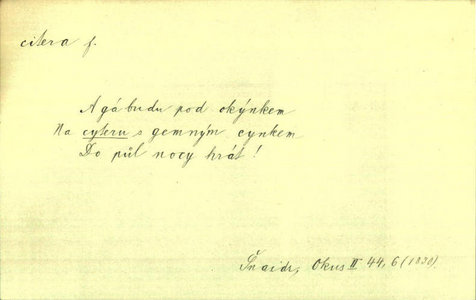 citera f.
A gá budu pod okýnkem
Na cyteru s gemným cynkem
Do půl nocy hrát!
Šnaidr, Okus II 44, 6 (1830).